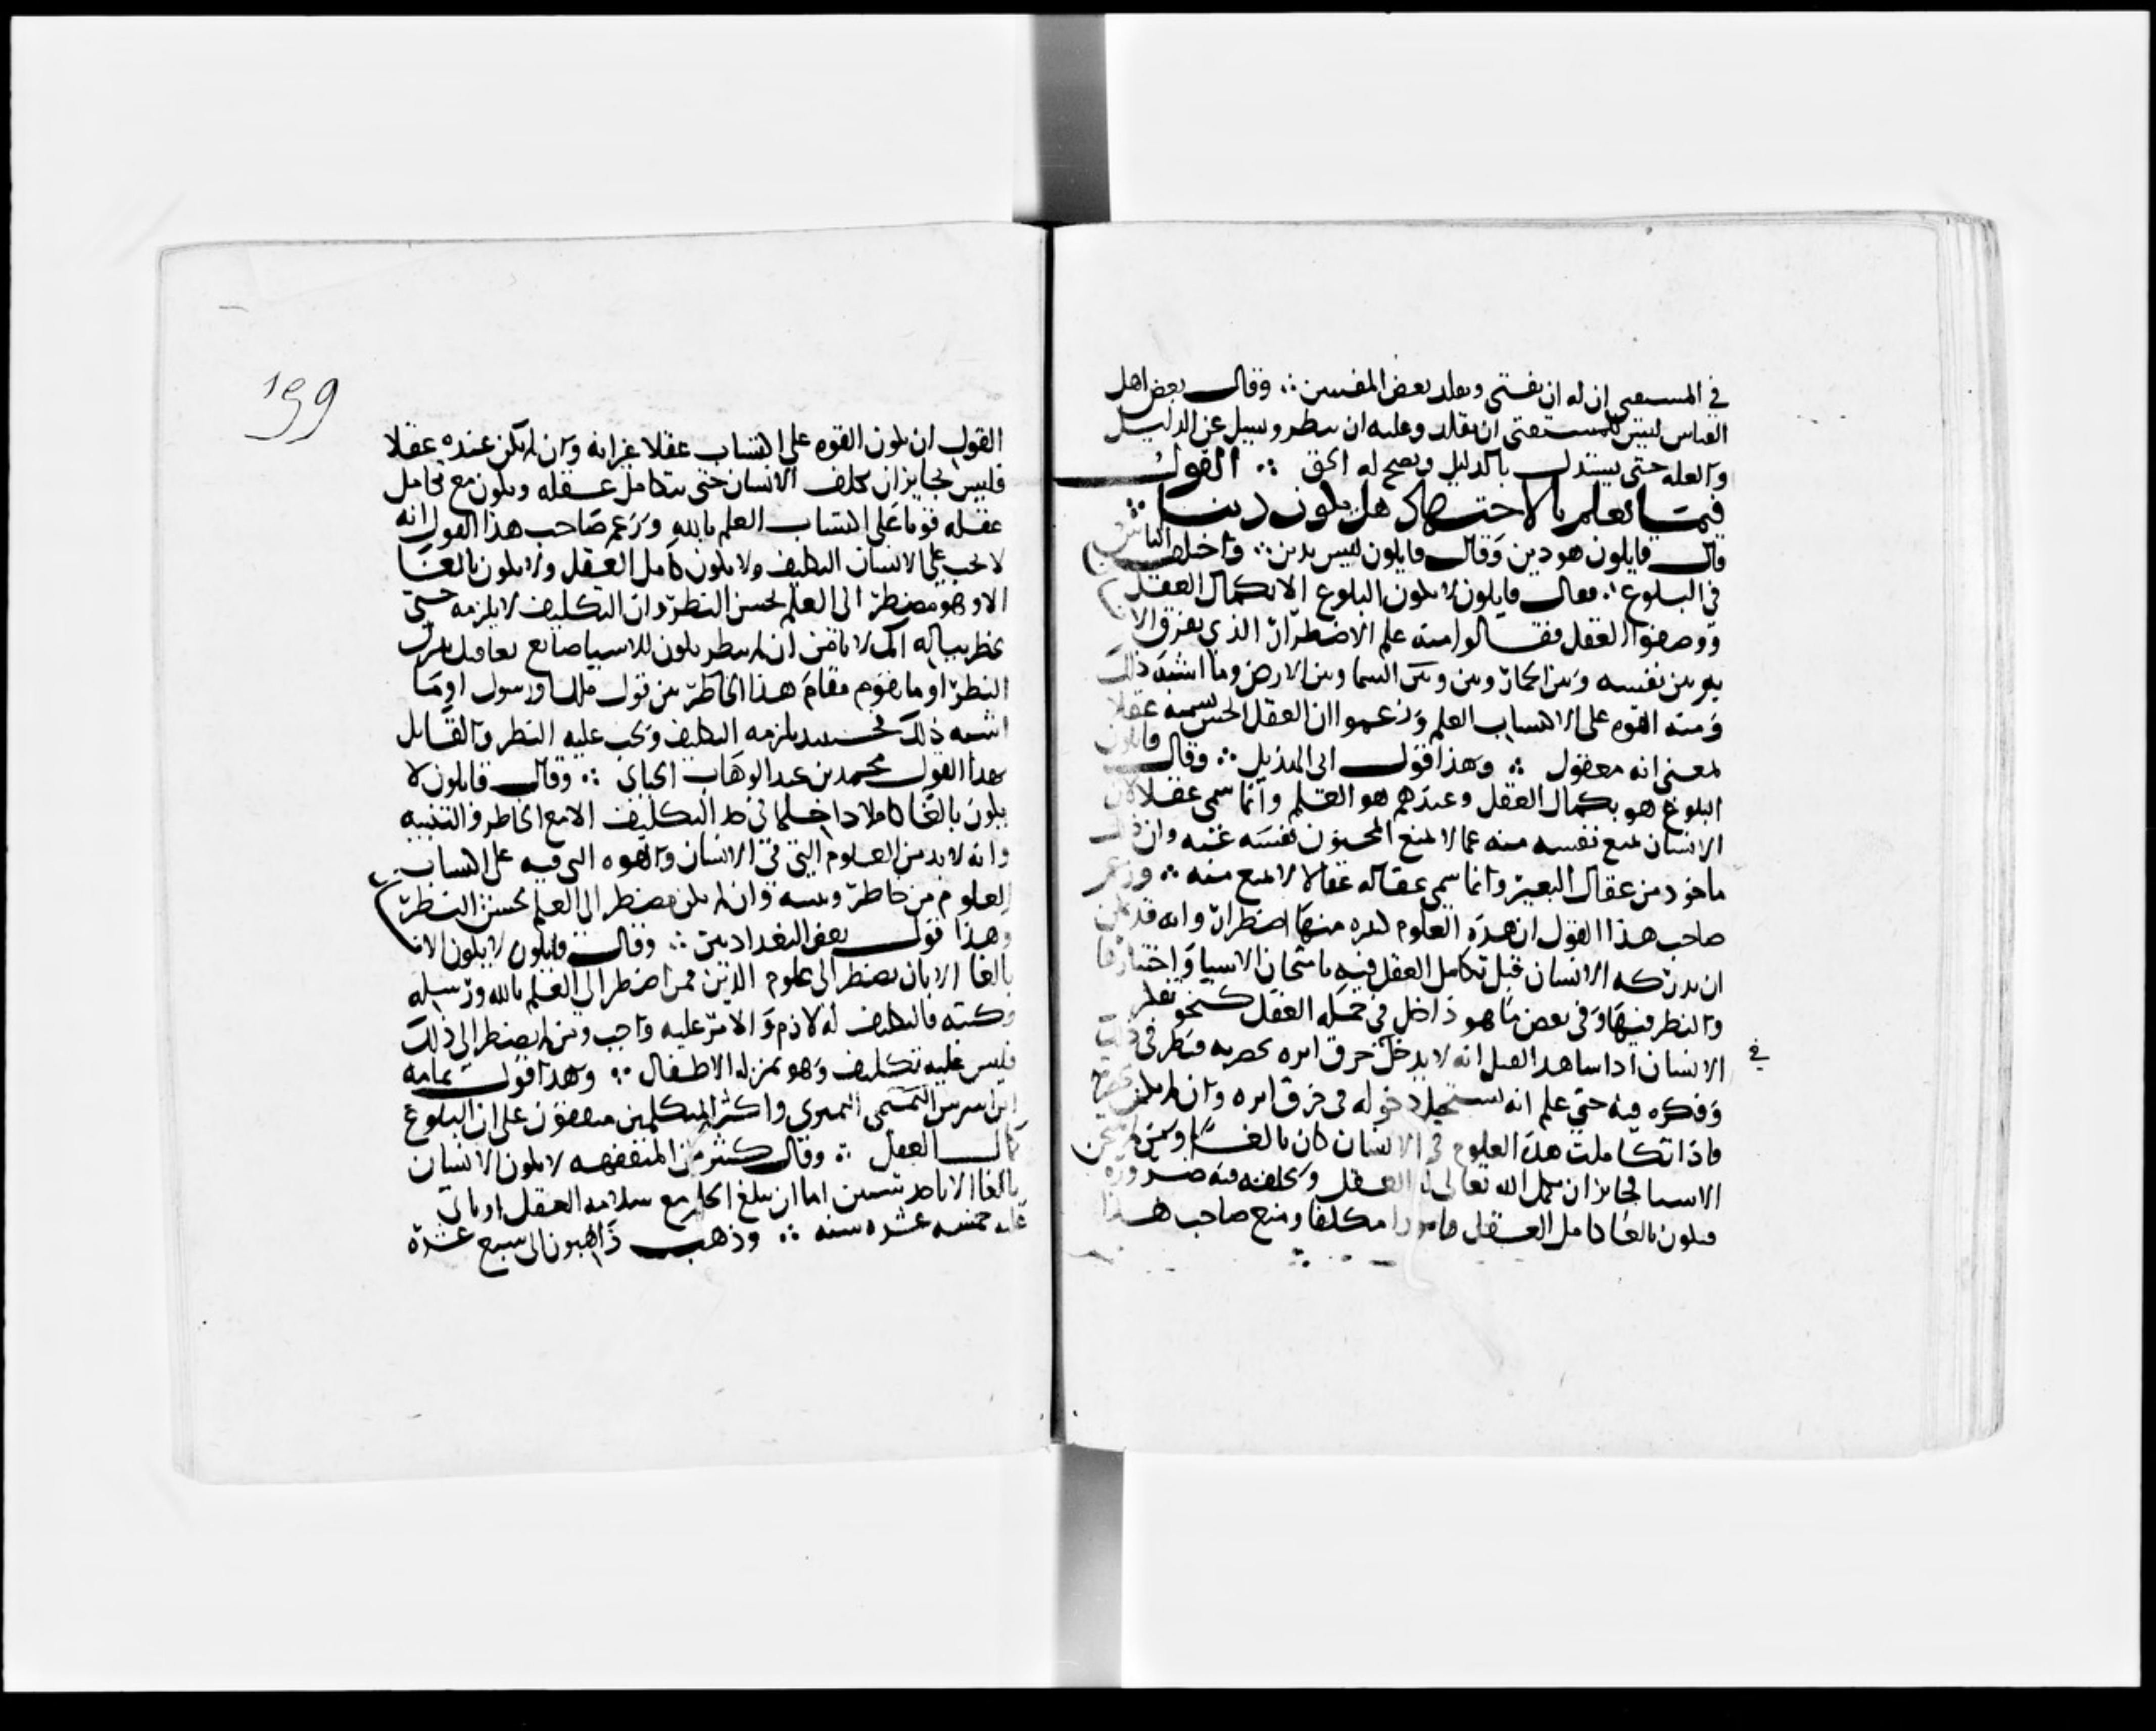 في المستفتي ان له ان يفتي ويقلد بعض المفتيين ∴ وقال بعض اهل
القياس ليس للمستفتي ان يقلد وعليه ان ينظر ويسيل عن الدليل
والعله حتى يستدل بالدليل ويصح له الحق ∴ القول
فيما يعلم بالاجتهاد هل يكون دينا ∴
قال قايلون هو دين وقال قايلون ليس بدين ∴ واختلف الناس
في البلوغ ∴ فقال قايلون لا يكون البلوغ الا بكمال العقل
ووصفوا العقل فقالوا منه علم الاضطرار الذي يفرق الا
به بين نفسه وبين الحمار وبين وبين السما وبين الارض وما اشبه ذلك
ومنه القوه على الاكتساب العلم وزعموا ان العقل الحس نسميه عقلا
لمعنى انه معقول ∴ وهذا قول ابي الهذيل ∴ وقال قايلون
البلوغ هو بكمال العقل وعندهم هو العلم وانما سمي عقلا لان
الانسان يمنع نفسه منه عما لا يمنع المجنون نفسه عنه وان ذلك
ماخوذ من عقال البعير وانما سمي عقاله عقالا لا يمنع منه ∴ وزعم
صاحب هذا القول ان هذه العلوم كثيره منها اضطرار وانه قد يمكن
ان يدركه الانسان قبل تكامل العقل فيه بامتحان الاشيا واختبارها
والنظر فيها وفي بعض ما هو داخل في جمله العقل كنحو تفكر
الانسان اذا شاهد الفيل انه لا يدخل خرق ابره بحضرته فنظر في ذلك
في
وفكره فيه حتى علم انه يستحيل دخوله في خرق ابره وان لم يكن بحضرته
فاذا تكاملت هذه العلوم في الانسان كان بالغا ومن لم يمتحن
الاشيا فجايز ان يكمل الله تعالى له العقل ويخلقه فيه ضروره
فيكون بالغا كامل العقل مامورا مكلفا ومنع صاحب هذا
199
القول ان يكون القوه على اكتساب عقلا غير انه وان لم يكن عنده عقلا
فليس بجايز ان يكلف الانسان حتى يتكامل عقله ويكون مع تكامل
عقله قويا على اكتساب العلم بالله وزعم صاحب هذا القول انه
لا يجب على الانسان التكليف ولا يكون كامل العقل ولا يكون بالغا
الا وهو مضطر الى العلم بحسن النظر وان التكليف لا يلزمه حتى
يخطر بباله انك لا تامن ان لم تنظر يكون للاشيا صانع يعاقبك بترك
النظر او ما يقوم مقام هذا الخاطر من قول ملك او رسول او ما
اشبه ذلك فحينيد يلزمه التكليف ويجب عليه النظر والقايل
بهذا القول محمد بن عبد الوهاب الجباي ∴ وقال قايلون لا
يكون بالغا كاملا داخلا في حد التكليف الا مع الخاطر والتنبيه
وانه لا بد من العلوم التي في الانسان والقوه التي فيه على اكتساب
العلوم من خاطر وتنبيه وان لم يكن مضطر الى العلم بحسن النظر
وهذا قول بعض البغداديين ∴ وقال قايلون لا يكون الانسان
بالغا الا بان يضطر الى علوم الدين فمن اضطر الى العلم بالله ورسله
وكتبه فالتكليف له لازم والامر عليه واجب ومن لم يضطر الى ذلك
فليس عليه تكليف وهو بمنزله الاطفال ∴ وهذا قول ثمامه
ابن اشرس النميري واكثر المتكلمين متفقون على ان البلوغ
كمال العقل ∴ وقال كثير من المتفقهه لا يكون الانسان
بالغا الا باحد شيين اما ان يبلغ الحلم مع سلامه العقل او ياتي
عليه خمسه عشره سنه ∴ وذهب ذاهبون الى سبع عشره